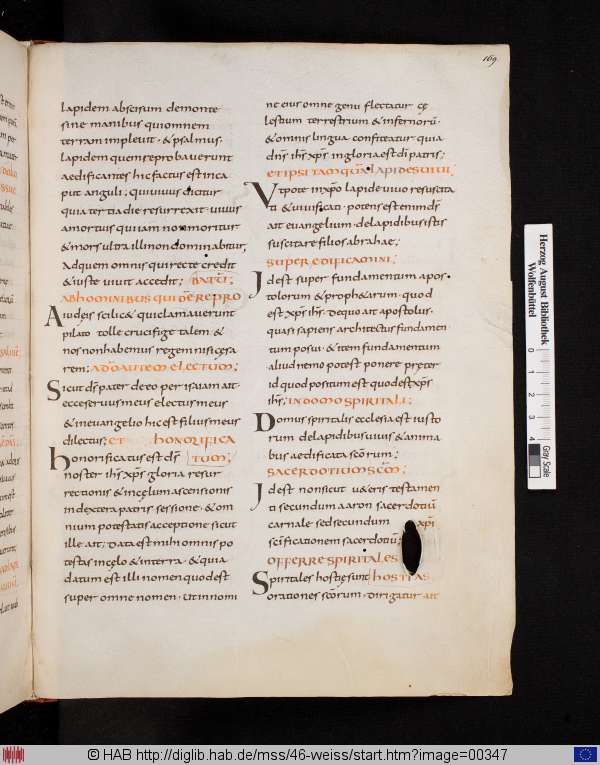 169
lapidem abscisum demonte
sine manibus quiomnem
terram implevit · & psalmus ·
lapidem quem reprobaverunt
aedificantes hic factus est inca
put anguli ; qui vivus dicitur
quia tertia die resurrexit · vivus
amortuis quiiam non moritur
& mors ultra illi non dominabitur ;
Adquem omnis qui recte credit
& iuste vivit accedit ;
ABHOMINIBUS QUIDĒ REPRO BATŪ ;
Iudeis scilic& qui clamaverunt
pilato · tolle crucifige talem &
nos non habemus regem nisi cęsa
rem ; ADŌ AUTEM ELECTUM ;
Sicut dš pater de eo per isaiam ait ·
ecce servus meus electus meus
& in evangelio hic est filius meus
dilectus ; ET HONORIFICA
TUM ;
honorificatus est dš
noster ihš xpš gloria resur
rectionis & in cęlum ascensionis
indextera patris sessione · & om
nium potestatis acceptione sicut
ille ait ; Data est mihi omnis po
testas in cęlo & in terra · & quia
datum est illi nomen quod est
super omne nomen · Ut in nomi
ne eius omne genu flectatur cę
lestium terrestrium & infernorū
& omnis lingua confiteatur quia
dnš ihš xpš in gloria est dī patris ;
ET IPSI TAMQUĀ LAPIDES VIVI
Utpote in xpō lapide vivo resuscita
ti & vivificati · potens est enim dš
ait evangelium · de lapidibus istis
suscitare filios abrahae ;
SUPER EDIFICAMINI ;
Id est super fundamentum apos
tolorum & proph&arum · quod
est xpš ihš · De quo ait apostolus ·
quasi sapiens architectus fundamen
tum posui · & item fundamentum
aliud nemo potest ponere pręter
id quod positum est quod est xpš
ihš ; IN DOMO SPIRITALI ;
Domus spiritalis ecclesia est iusto
rum de lapidibus vivis & anima
bus aedificata scōrum ;
SACERDOTIUM SCM̄ ;
Id est non sicut v&eris testamen
ti secundum aaron sacerdotiū
carnale sed secundum xpī
scīficationem sacerdotiū ;
OFFERRE SPIRITALES
HOSTIAS
Spiritales hostię sunt
orationes scōrum · dirigatur ait
Herzog August Bibliothek
Wolfenbüttel
0 1 2 3 4
Gray Scale
© HAB http://diglib.hab.de/mss/46-weiss/start.htm?image=00347